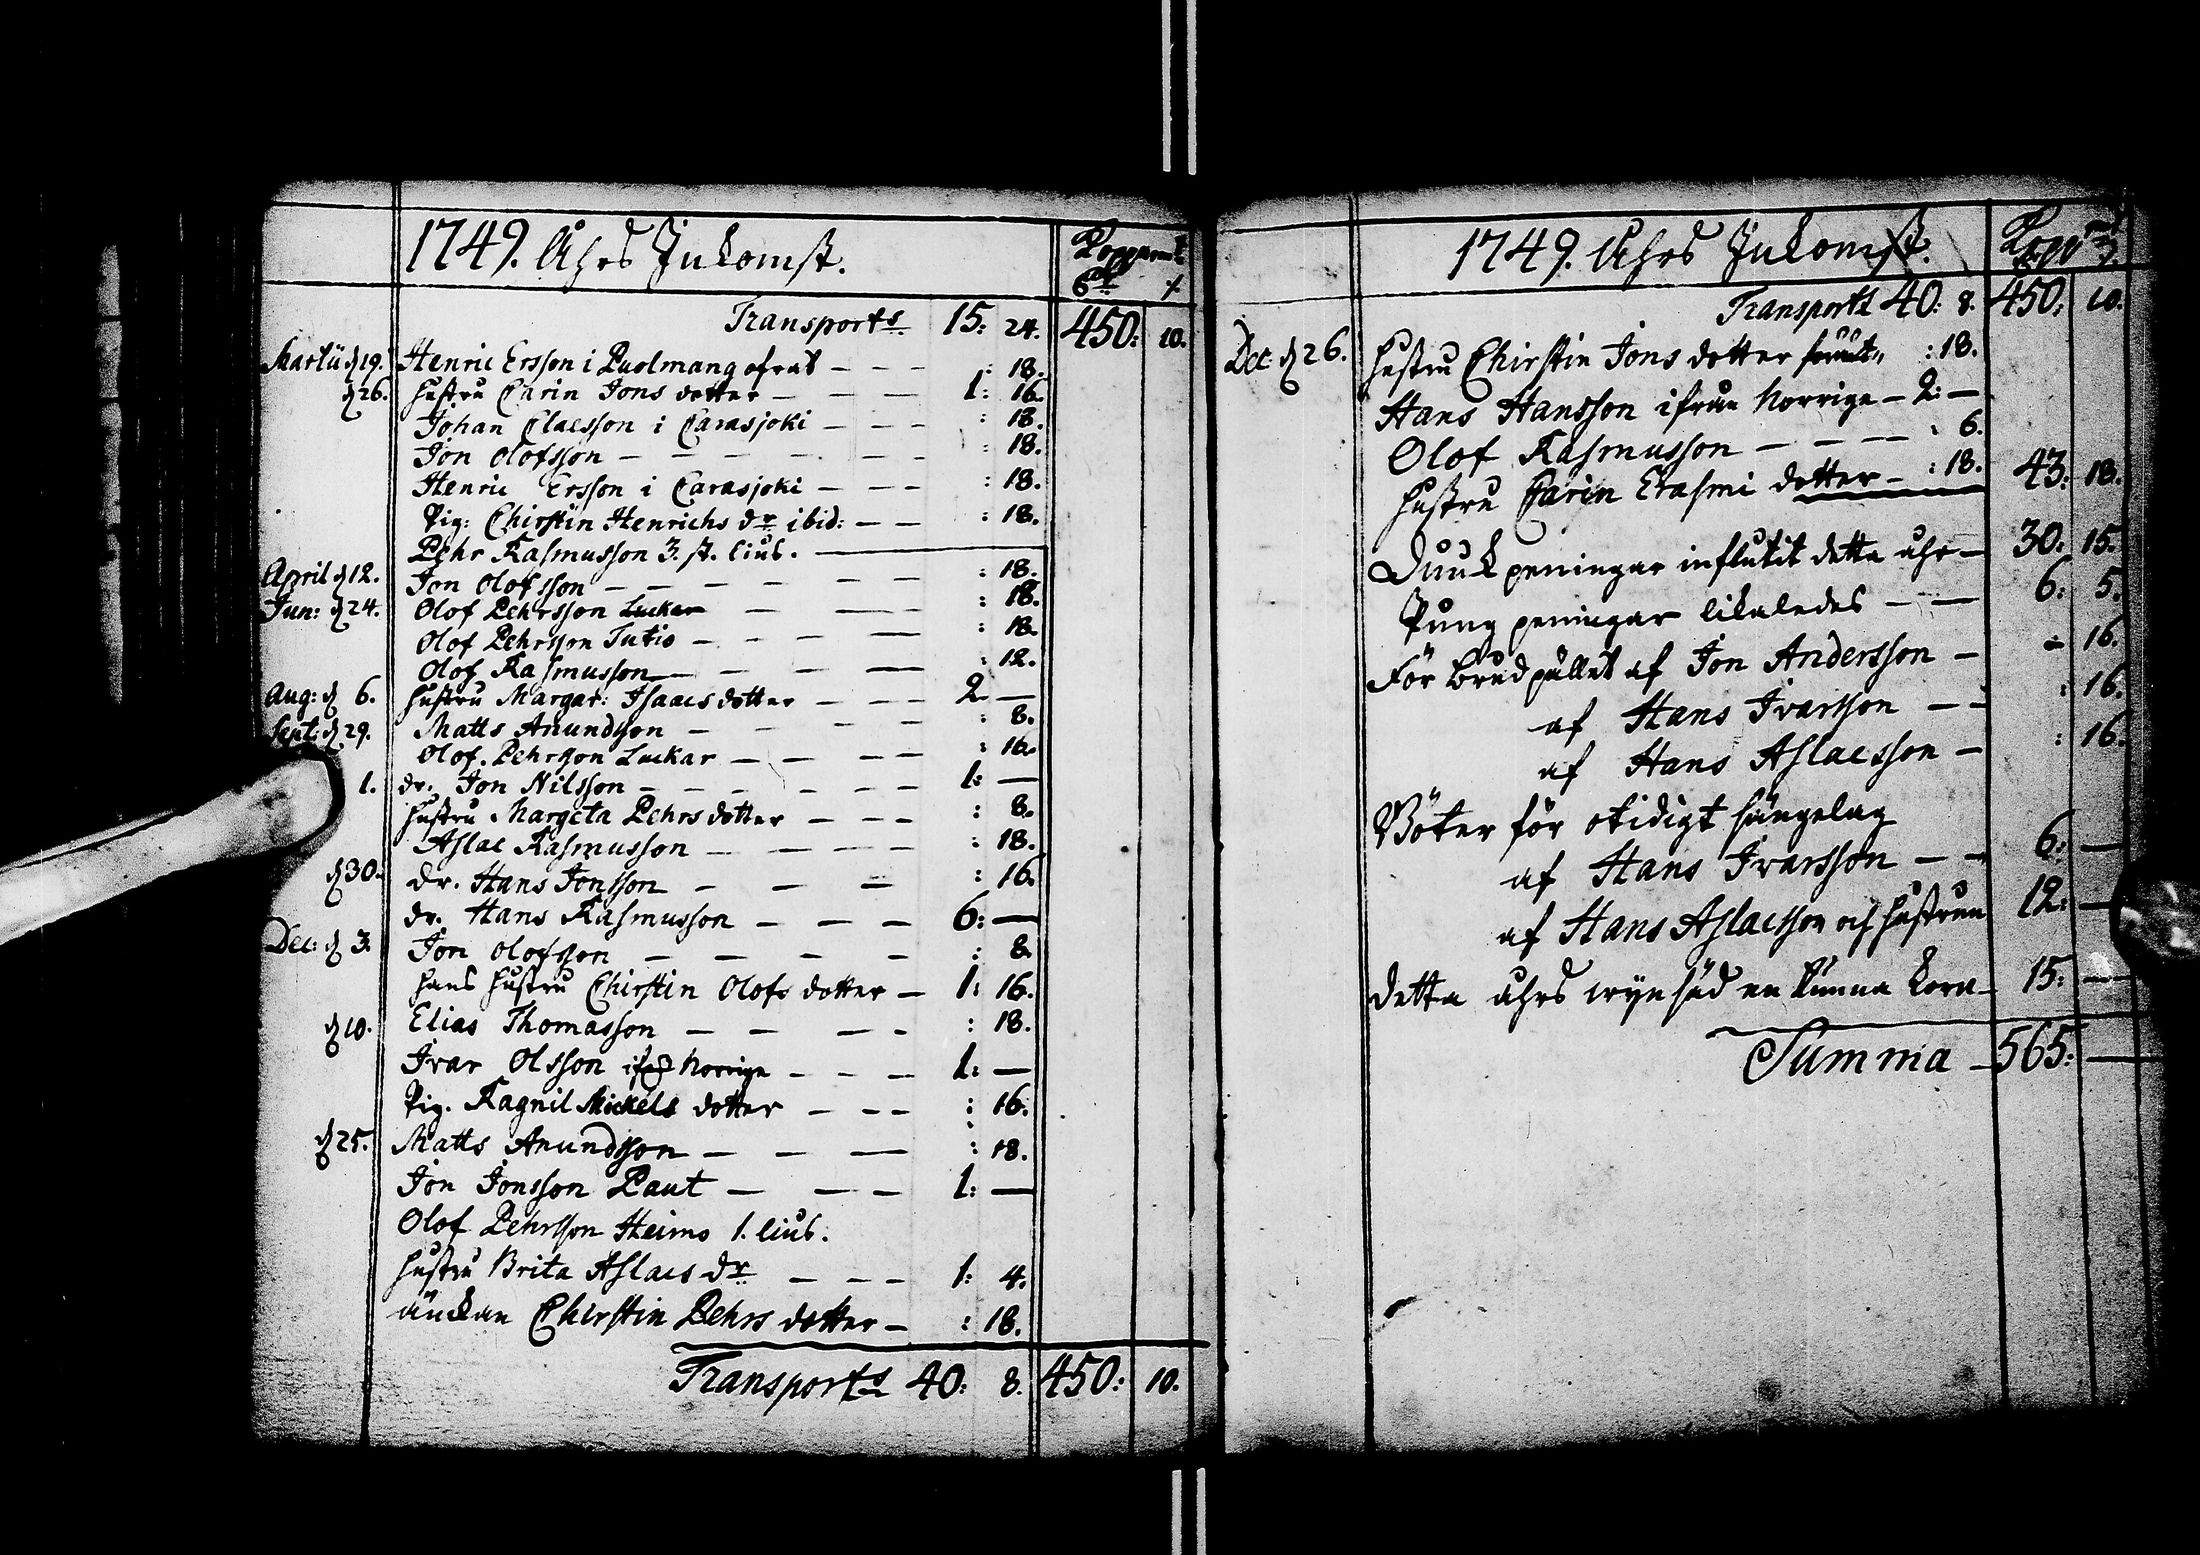 1749. Åhrs Inkomst. Koppermt
6dlr /.
Transports 15: 24. 450: 10.
Martii d 19. Henric Ersson i Puolmang ofrat — — — : 18.
d 26. hustru Carin Jons dotter — — — 1: 16.
Johan Claesson i Carasjoki — — — : 18.
Jon Olofsson — — — — — : 18.
Henric Ersson i Carasjoki — — — : 18.
Pig: Chirstin Henrichs dr ibid: — — : 18.
Pehr Rasmusson 3. st. lius. —
April d 12. Jon Olofsson — — — — — : 18.
Jun: d 24. Olof Pehrsson Luckar — — — : 18.
Olof Pehrsson Tutio — — — — : 18.
Olof Rasmusson — — — — : 12.
Aug: d 6. hustru Margar: Isaacs dotter — — — 2 —
Sept: d 29. Matts Amundsson — — — — — : 8.
Olof Pehrsson Luckar — — — — : 16.
1. dr. Jon Nilsson — — — — — — 1: —
hustru Margeta Pehrs dotter — — — : 8.
Aslac Rasmusson — — — — : 18.
d 30. dr. Hans Jonsson — — — : 16.
dr. Hans Rasmusson — — — 6: —
Dec: d 3. Jon Olofsson — — — — : 8.
hans hustru Chirstin Olofs dotter — 1: 16.
d 10. Elias Thomasson — — — — : 18.
Ivar Olsson ifrå Norrige — — — 1: —
Pig. Ragnil Mickels dotter — — — : 16.
d 25. Matts Amundsson — — — : 18.
Jon Jonsson Paut — — — 1: —
Olof Pehrsson Heimo 1. lius.
hustru Brita Aslacs dr — — — 1: 4.
änckan Chirstin Pehrs dotter — : 18.
Transports 40: 8. 450: 10.
1749. Åhrs Inkomst. Koppmt
Transports 40: 8. 450: 10.
Dec: d 26. hustru Chirstin Jons dotter : 18.
Hans Hansson ifrån Norrige — 2: —
Olof Rasmusson — — — — : 6.
hustru Carin Erasmi dotter — : 18. 43: 18.
peningar influtit detta åhr — 30: 15.
Pung peningar likaledes — — 6: 5.
För brudpället af Jon Andersson — : 16.
af Hans Ivarsson — — : 16.
af Hans Aslacsson — : 16.
Böter för otidigt sängelag
af Hans Ivarsson — — 6: —
af Hans Aslacsson och hustrun 12: —
detta åhrs wijnsäd en tunna korn — 15: —
Summa — 565: —